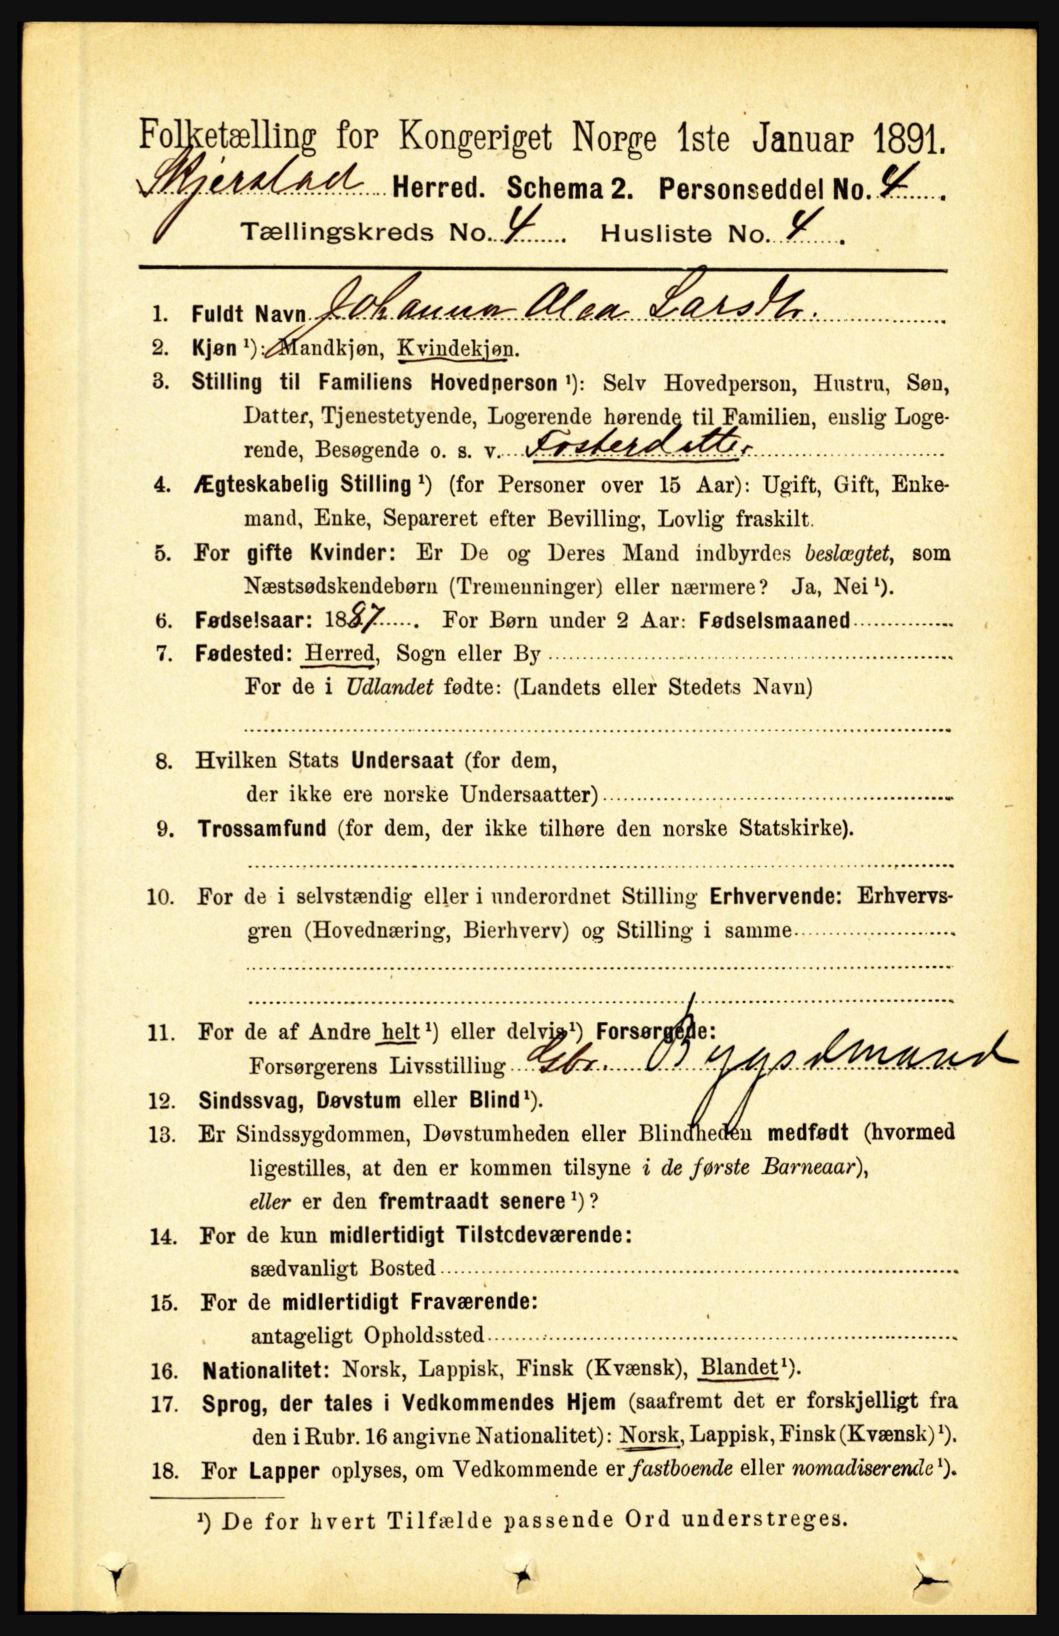 Folketælling for Kongeriget Norge 1ste Januar 1891.
Skjerstad Herred. Schema 2. Personseddel No. 4.
Tællingskreds No. 4. Husliste No. 4.
1. Fuldt Navn Johanna Alea Larsdtr.
2. Kjøn ¹): Mandkjøn, Kvindekjøn.
3. Stilling til Familiens Hovedperson ¹): Selv Hovedperson, Hustru, Søn,
Datter, Tjenestetyende, Logerende hørende til Familien, enslig Loge-
rende, Besøgende o. s. v. Fosterdatter
4. Ægteskabelig Stilling ¹) (for Personer over 15 Aar): Ugift, Gift, Enke-
mand, Enke, Separeret efter Bevilling, Lovlig fraskilt.
5. For gifte Kvinder: Er De og Deres Mand indbyrdes beslægtet, som
Næstsødskendebørn (Tremenninger) eller nærmere? Ja, Nei ¹).
6. Fødselsaar: 1887. For Børn under 2 Aar: Fødselsmaaned
7. Fødested: Herred, Sogn eller By
For de i Udlandet fødte: (Landets eller Stedets Navn)
8. Hvilken Stats Undersaat (for dem,
der ikke ere norske Undersaatter)
9. Trossamfund (for dem, der ikke tilhøre den norske Statskirke).
10. For de i selvstændig eller i underordnet Stilling Erhvervende: Erhvervs-
gren (Hovednæring, Bierhverv) og Stilling i samme
11. For de af Andre helt ¹) eller delvis ¹) Forsørgede:
Forsørgerens Livsstilling Gbr. Bygsdmand
12. Sindssvag, Døvstum eller Blind ¹).
13. Er Sindssygdommen, Døvstumheden eller Blindheden medfødt (hvormed
ligestilles, at den er kommen tilsyne i de første Barneaar),
eller er den fremtraadt senere ¹)?
14. For de kun midlertidigt Tilstedeværende:
sædvanligt Bosted
15. For de midlertidigt Fraværende:
antageligt Opholdssted
16. Nationalitet: Norsk, Lappisk, Finsk (Kvænsk), Blandet ¹).
17. Sprog, der tales i Vedkommendes Hjem (saafremt det er forskjelligt fra
den i Rubr. 16 angivne Nationalitet): Norsk, Lappisk, Finsk (Kvænsk) ¹).
18. For Lapper oplyses, om Vedkommende er fastboende eller nomadiserende ¹).
¹) De for hvert Tilfælde passende Ord understreges.